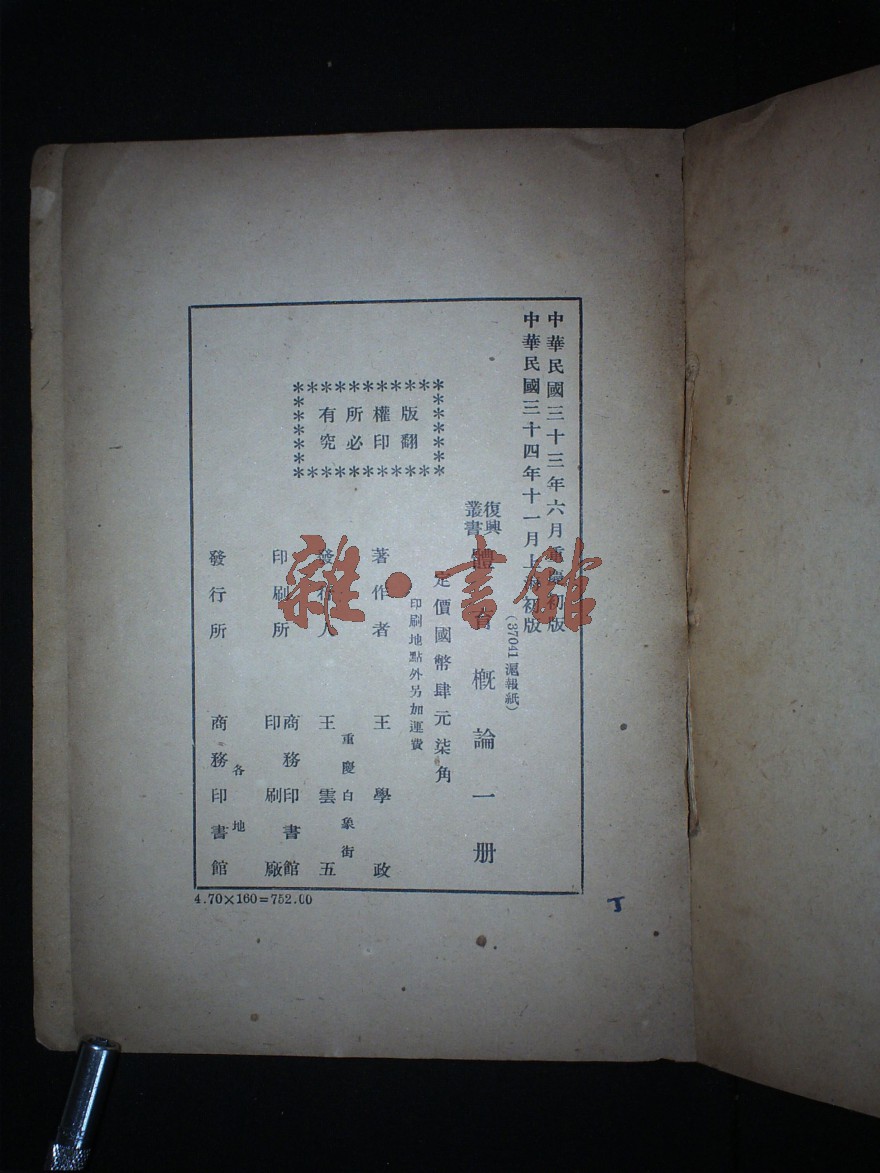 中華民國三十三年六月重慶初版
中華民國三十四年十一月上海初版
(37041 滬報紙)
復興
叢書
體育概論一册
定價國幣肆元柒角
印刷地點外另加運費
版權所有
翻印必究
著作者 王學政
重慶白象街
發行人 王雲五
印刷所 商務印書館
印刷廠
各地
發行所 商務印書館
4.70×160=752.00
丁
雜·書館